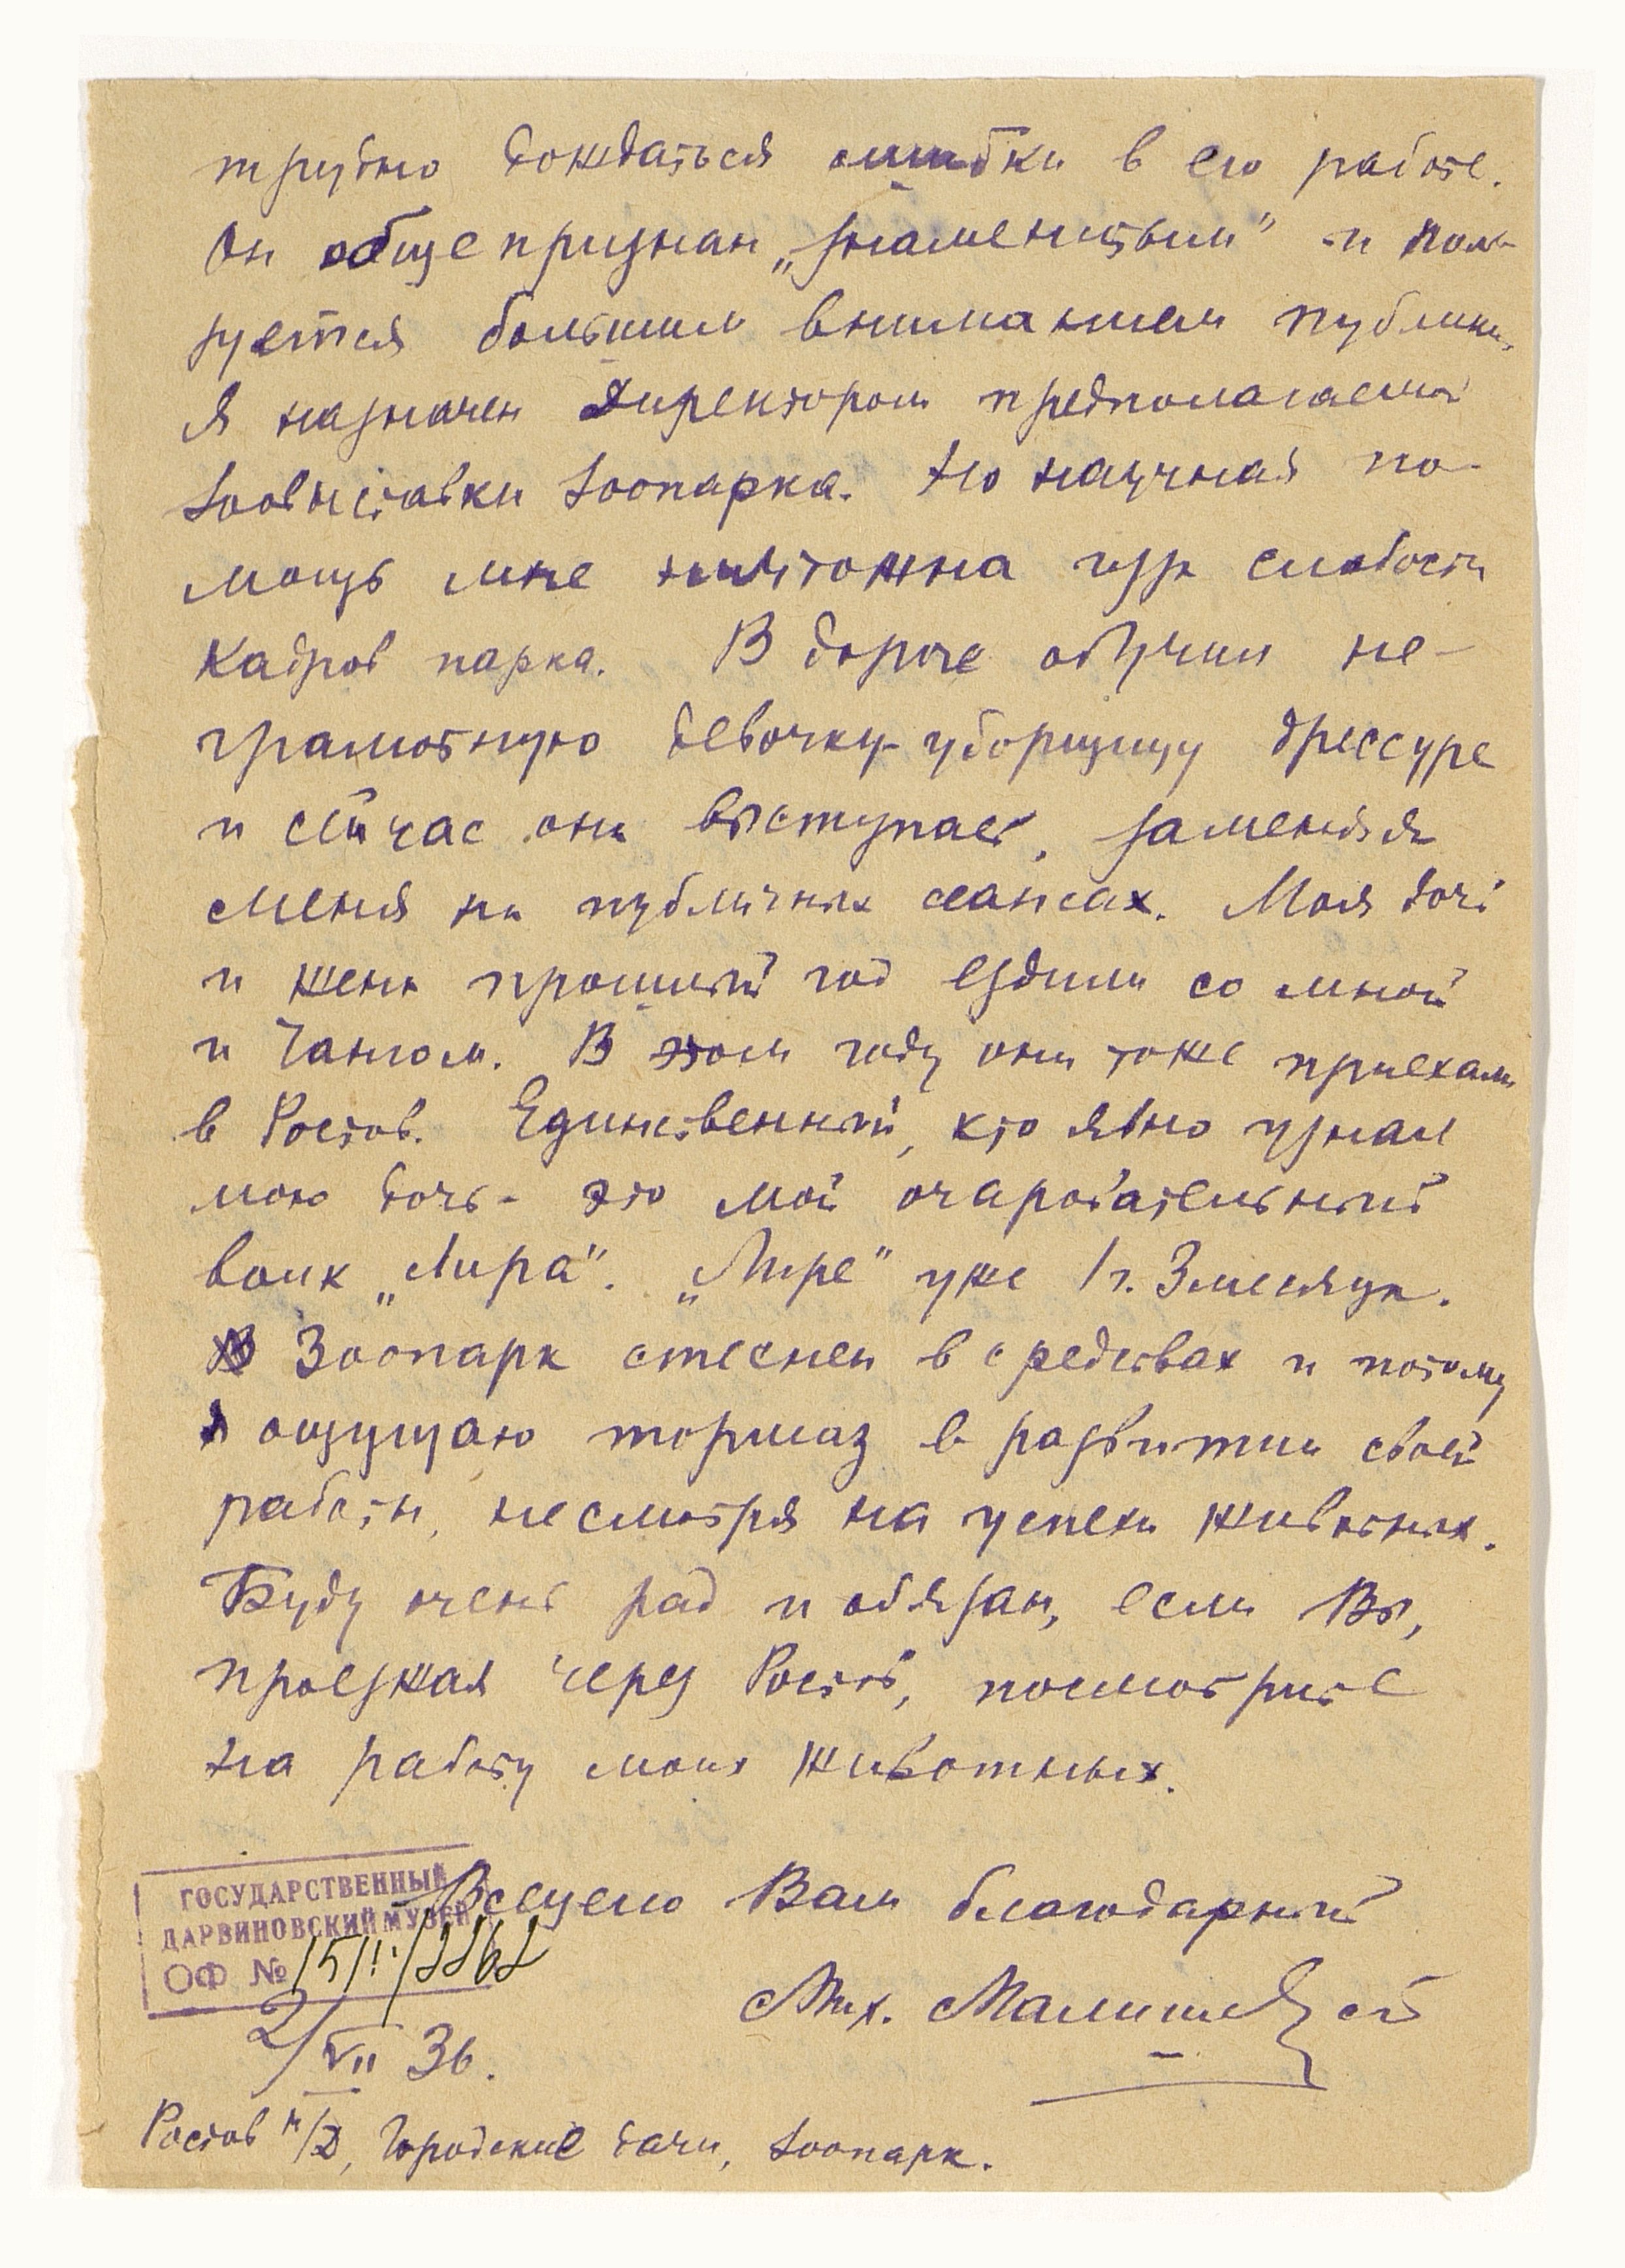 трудно дождаться ошибки в его работе.
Он общепризнан „знаменитым" и поль-
зуется большим вниманием публики.
Я назначен директором предполагаемой
зоовыставки зоопарка. Но научная по-
мощь мне ничтожна из-за слабости
кадров парка. В дороге обучил не-
грамотную девочку-уборщицу дрессуре
и сейчас она выступает, заменяя
меня на публичных сеансах. Моя дочь
и жена прошлый год ездили со мной
и Чангом. В этом году они тоже приехали
в Ростов. Единственный, кто явно узнал
мою дочь - это мой очаровательный
волк „Лира". „Лире" уже 1 г. 3 месяца.
Зоопарк стеснен в средствах и потому
я ощущаю тормаз в развитии своей
работы, несмотря на успехи животных.
Буду очень рад и обязан, если Вы,
проезжая через Ростов, посмотрите
на работу моих животных.
Всецело Вам благодарный
Мих. Малишевский
ГОСУДАРСТВЕННЫЙ
ДАРВИНОВСКИЙ МУЗЕЙ
ОФ №
2/VII 36.
Ростов н/Д, Городские дачи, Зоопарк.